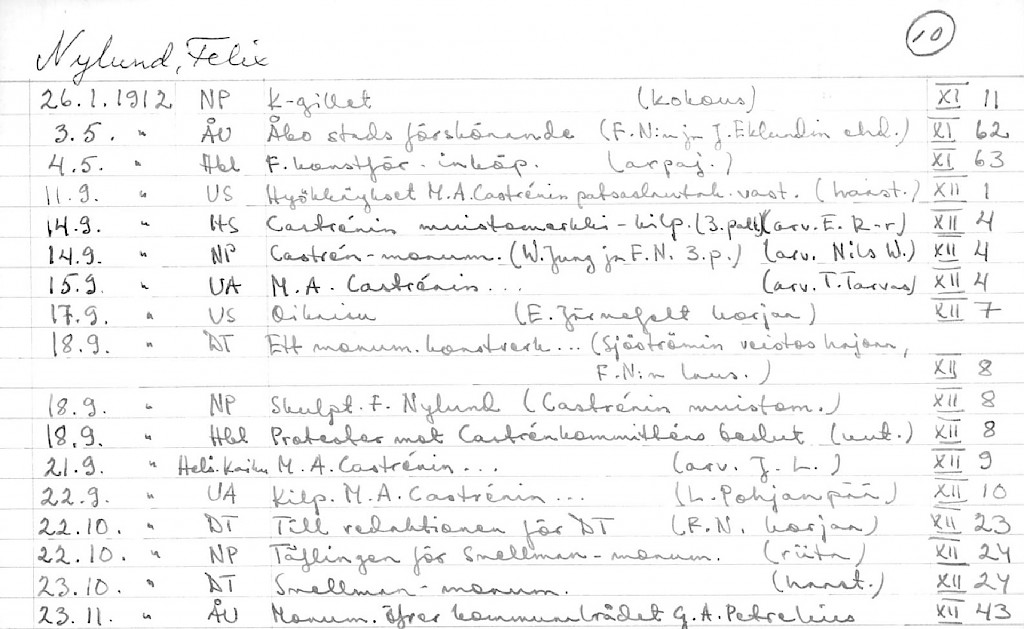 10
Nylund, Felix
26.1.1912 NP K-gillet (kokous) XI 11
3.5. " ÅU Åbo stads förskönande (F.N:n ja J. Eklundin ehd.) XI 62
4.5. " Hbl F. konstför. inköp. (arpaj.) XI 63
11.9. " US Hyökkäykset M.A. Castrénin patsaslautak. vast. (haast.) XII 1
14.9. " HS Castrénin muistomerkki-kilp. (3. palk) (arv. E. R-r) XII 4
14.9. " NP Castrén-monum. (W. Jung ja F.N. 3.p.) (arv. Nils W.) XII 4
15.9. " UA M.A. Castrénin... (arv. T. Tarvas) XII 4
17.9. " US Oikaisu (E. Järnefelt korjaa) XII 7
18.9. " DT Ett monum. konstverk... (Sjöströmin veistos kajaan,
F.N:n laus.) XII 8
18.9. " NP Skulpt. F. Nylund (Castrénin muistom.) XII 8
18.9. " Hbl Protester mot Castrénkommitténs beslut (uut.) XII 8
21.9. " Hels. Kaiku M.A. Castrénin... (arv. J. L.) XII 9
22.9. " UA Kilp. M.A. Castrénin... (L. Pohjanpää) XII 10
22.10. " DT Till redaktionen för DT (F.N. korjaa) XII 23
22.10. " NP Täflingen för Snellman-monum. (riita) XII 24
23.10. " DT Snellman-monum. (haast.) XII 24
23.11. " ÅU Monum. öfver kommunalrådet G.A. Petrelius XII 43